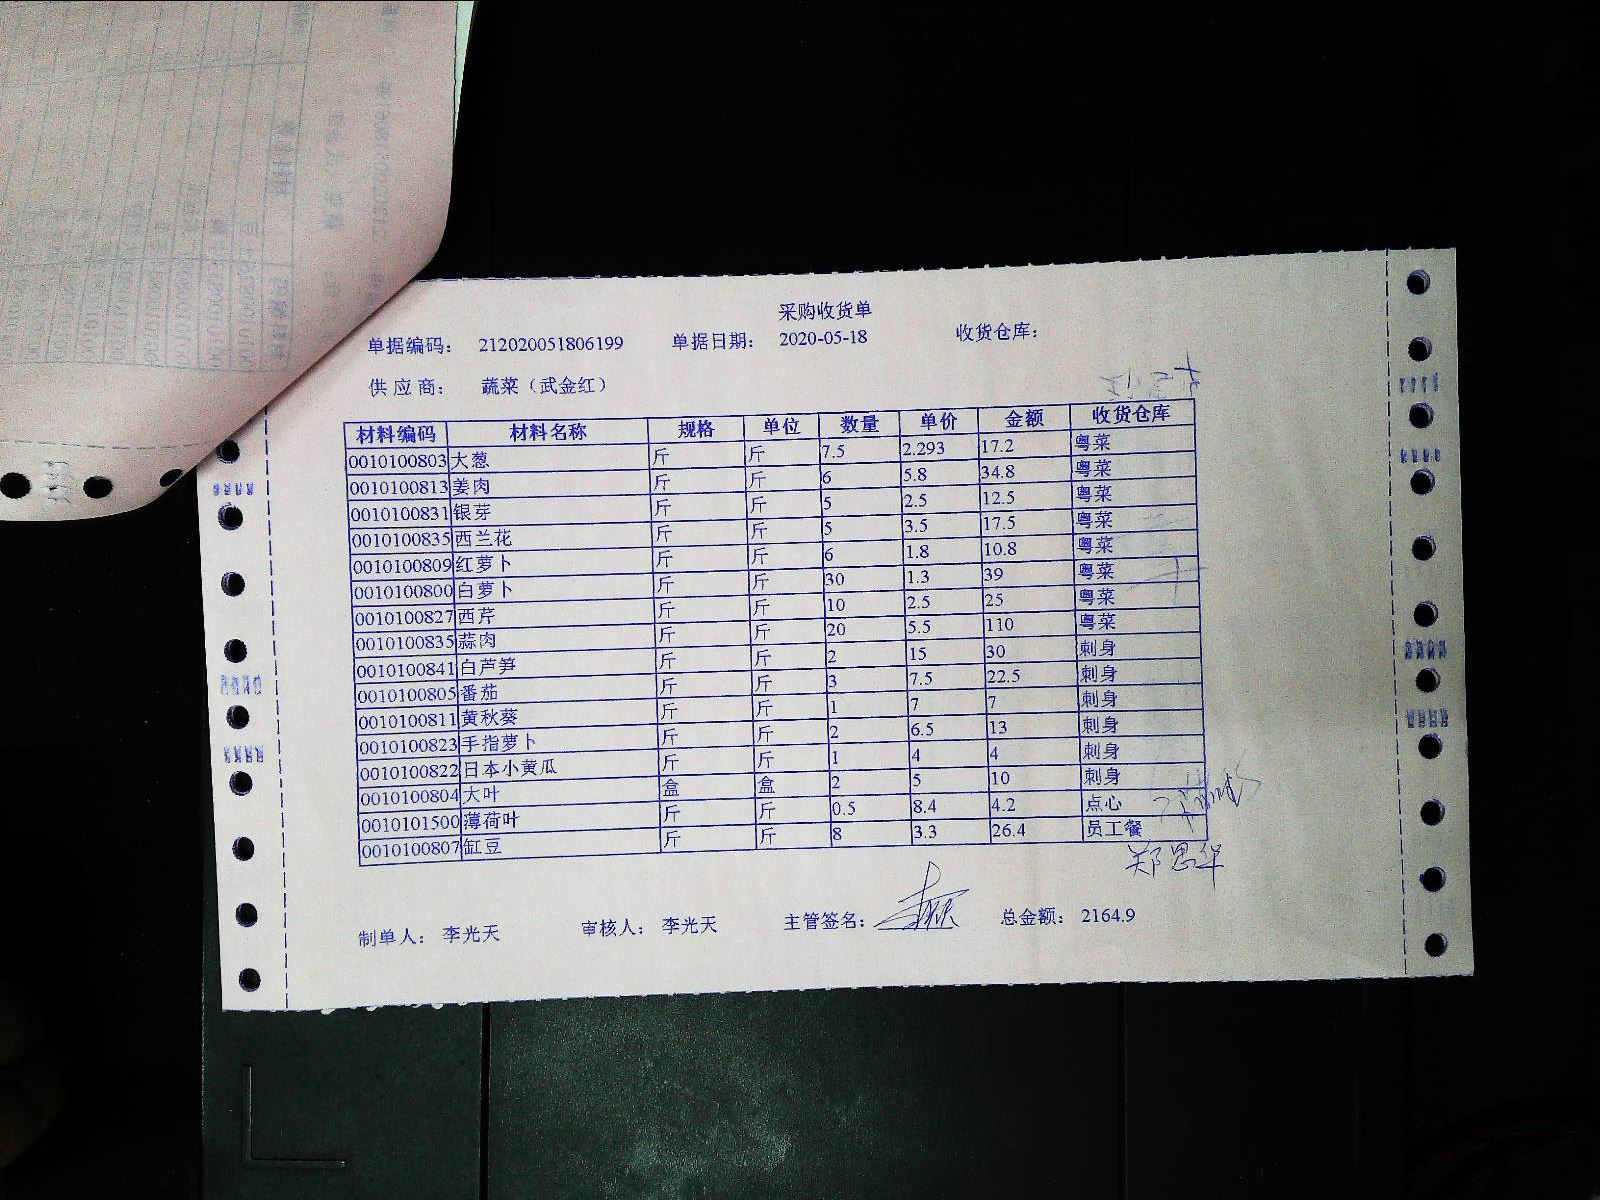 采购收货单
单据编码： 212020051806199 单据日期： 2020-05-18 收货仓库：
供 应 商： 蔬菜（武金红）
材料编码 材料名称 规格 单位 数量 单价 金额 收货仓库
0010100803 大葱 斤 斤 7.5 2.293 17.2 粤菜
0010100813 姜肉 斤 斤 6 5.8 34.8 粤菜
0010100831 银芽 斤 斤 5 2.5 12.5 粤菜
0010100835 西兰花 斤 斤 5 3.5 17.5 粤菜
0010100809 红萝卜 斤 斤 6 1.8 10.8 粤菜
0010100800 白萝卜 斤 斤 30 1.3 39 粤菜
0010100827 西芹 斤 斤 10 2.5 25 粤菜
0010100835 蒜肉 斤 斤 20 5.5 110 粤菜
0010100841 白芦笋 斤 斤 2 15 30 刺身
0010100805 番茄 斤 斤 3 7.5 22.5 刺身
0010100811 黄秋葵 斤 斤 1 7 7 刺身
0010100823 手指萝卜 斤 斤 2 6.5 13 刺身
0010100822 日本小黄瓜 斤 斤 1 4 4 刺身
0010100804 大叶 盒 盒 2 5 10 刺身
0010101500 薄荷叶 斤 斤 0.5 8.4 4.2 点心
0010100807 缸豆 斤 斤 8 3.3 26.4 员工餐
郑思华
制单人： 李光天 审核人： 李光天 主管签名： 总金额： 2164.9